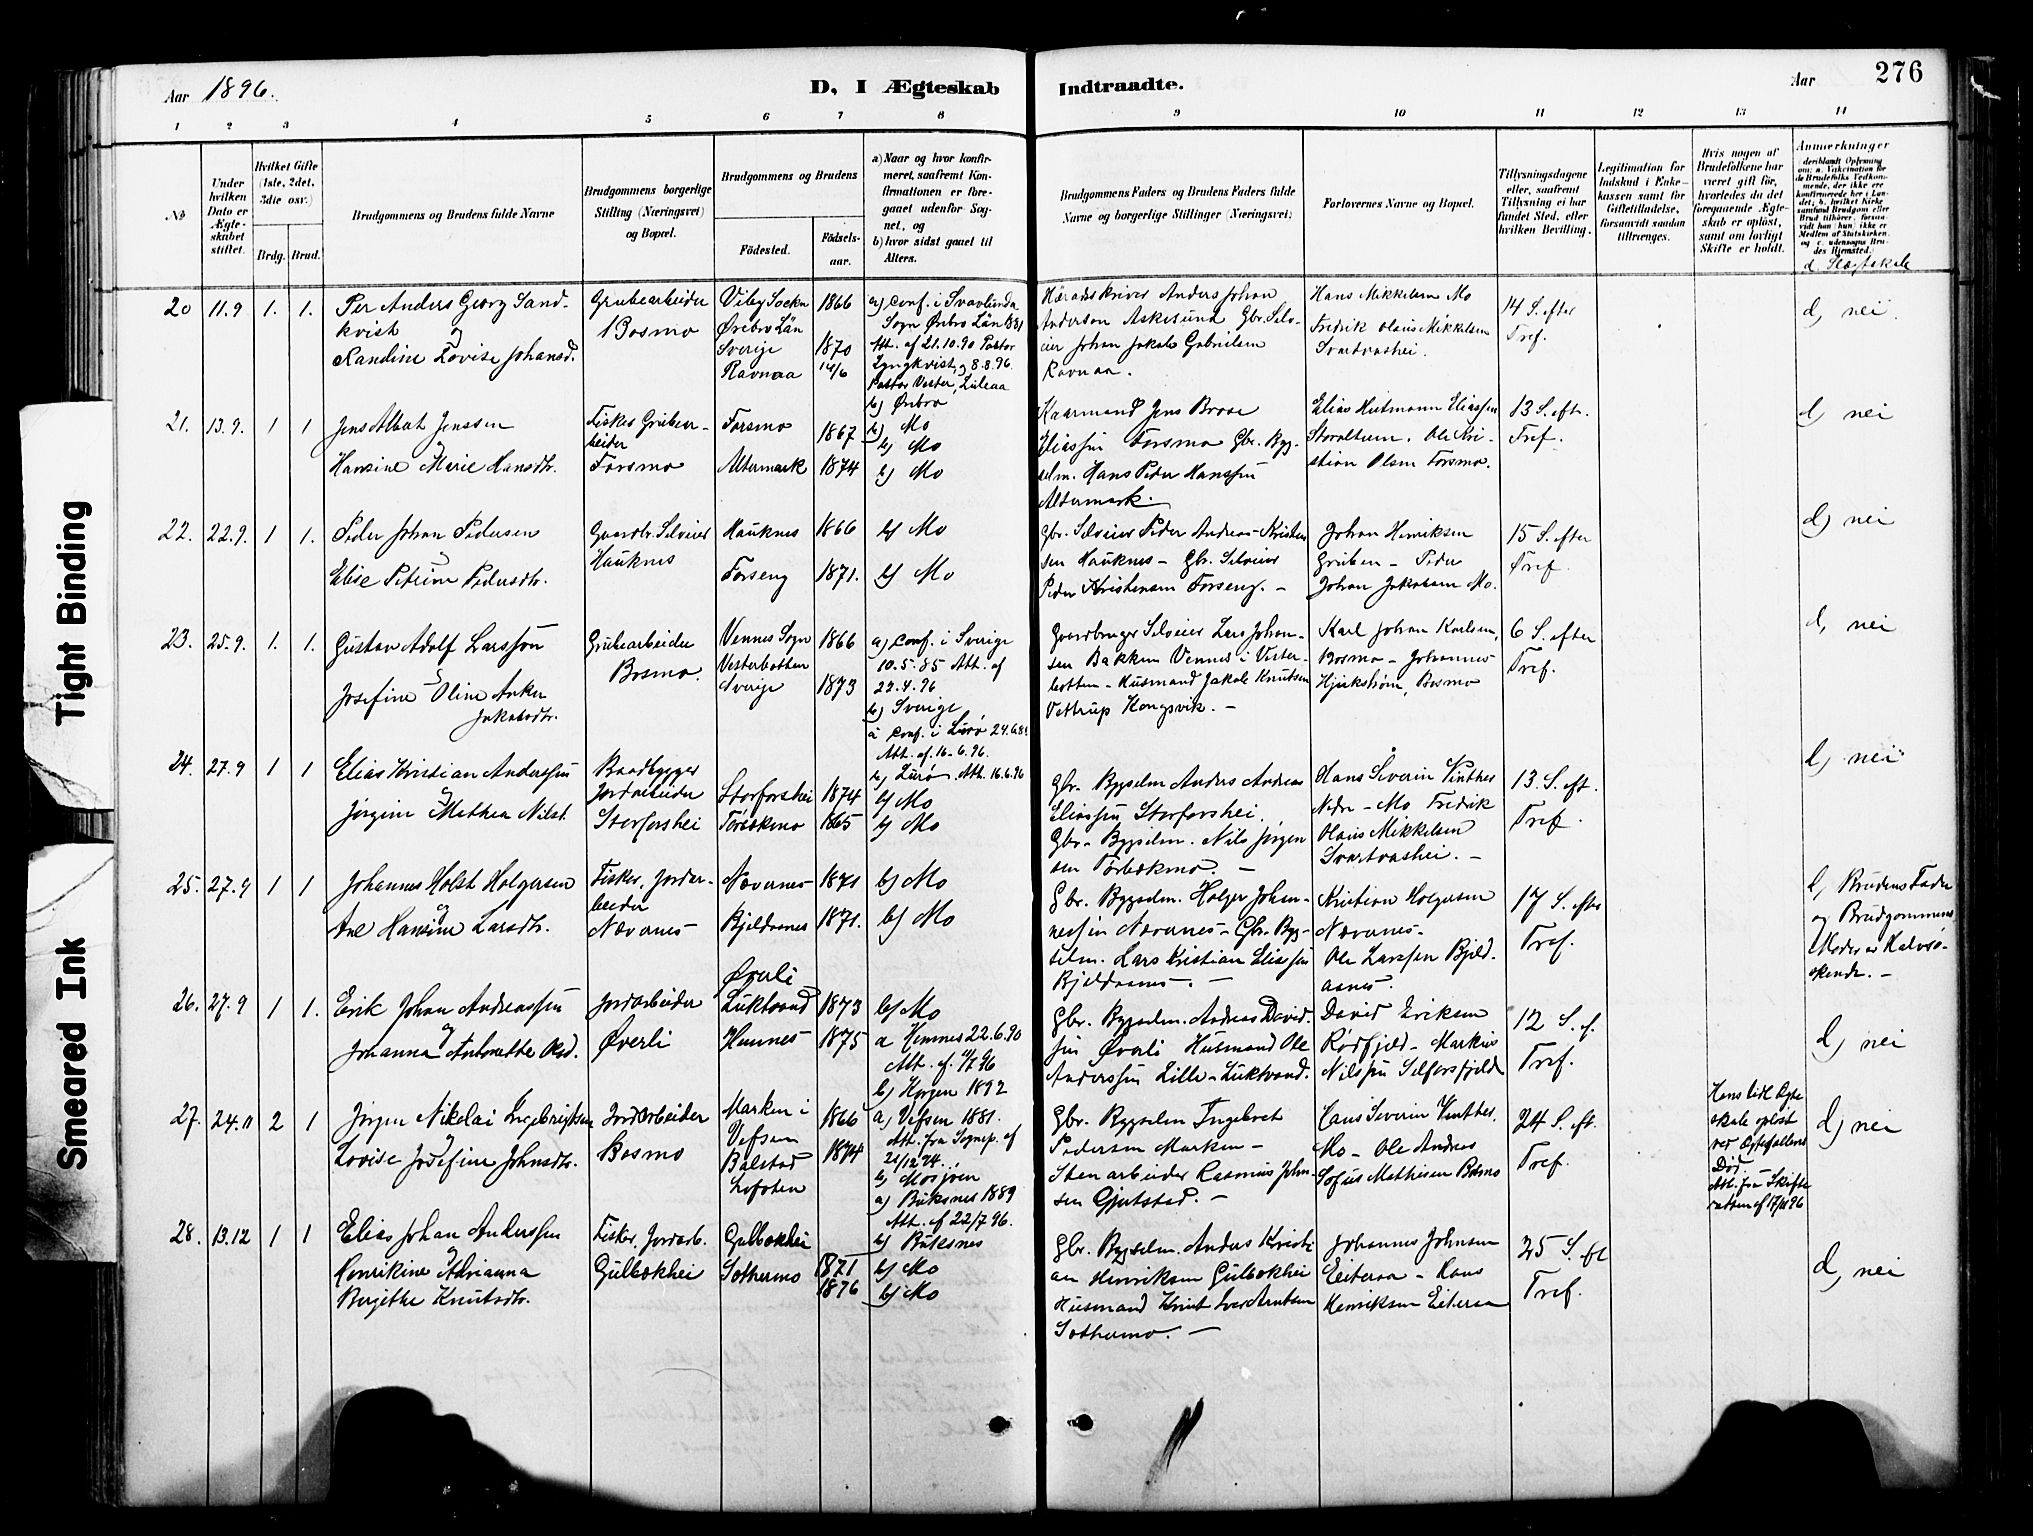 Aar 1896.
D, I Ægteskab
Indtraadte.
Aar
276
1 2 3 4 5 6 7 8 9 10 11 12 13 14
No
Under hvilken Dato er Ægteskabet stiftet.
Hvilket Gifte (1ste, 2det, 3die osv.)
Brdg. Brud.
Brudgommens og Brudens fulde Navne
Brudgommens borgerlige Stilling (Næringsvei) og Bopæl.
Brudgommens og Brudens
Fødested.
Fødselsaar.
a) Naar og hvor konfirmeret, saafremt Konfirmationen er foregaaet udenfor Sognet, og
b) hvor sidst gaaet til Alters.
Brudgommens Faders og Brudens Faders fulde Navne og borgerlige Stillinger (Næringsvei)
Forlovernes Navne og Bopæl.
Tillysningsdagene eller, saafremt Tillysning ei har fundet Sted, efter hvilken Bevilling.
Legitimation for Indskud i Enkekassen samt for Giftetilladelse, forsaavidt saadan tiltrænges.
Hvis nogen af Brudefolkene har været gift før, hvorledes da det foregaaende Ægteskab er opløst, samt om lovligt Skifte er holdt.
Anmerkninger
d Slægtskab
20 11.9 1. 1.
Per Anders Georg Sandkvist
og
Randine Lovise Johansd.
Grubearbeider
Bosmo
Viby Sockn
Örebro Län
Sverige
Ravnaa
1866
1870
14/6
a) Conf. i Svavlunda
Sogn Örebro Län 
Att. af 21.10.90 Pastor
Lyngkvist, og 8.8.96
Pastor Vester, Luleaa
b) Örebro
Häradsskriver Anders Johan
Anderson Askesund Gbr. Selveier Johan Jakob Gabrielsen
Ravnaa.
Hans Mikkelsen Mo
Fredrik Olaus Mikkelsen
Svartvashei.
14 S. efter
Tref.
d, nei.
21. 13.9. 1 1
Jens Albat Jenssen
Hansine Marie Hansdtr.
Fisker Grubearbeider
Forsmo
Forsmo
Altermark
1867
1874
b) Mo
b) Mo
b) Mo
Kaarmand Jens Broce
Eliassen Forsmo Gbr. Bygselm. Hans Peder Hanssen
Altermark.
Elias Hutmann Eliassen
Storalteren. Ole Kristian Olsen Forsmo.
13 S. eft.
Tref.
d, nei
22. 22.9. 1 1.
Peder Johan Pedersen
Elise Petrine Pedersdtr.
Gaardbr. Selveier
Hauknes
Hauknes
Forseng
1866
1871.
b) Mo
b) Mo
Gbr. Selveier Peder Andreas Kristensen Hauknes – Gbr. Selveier
Peder Kristensen Forseng. –
Johan Henriksen
Gruben – Peder
Johan Jakobsen Mo.
15 S. efter
Tref.
d, nei
23. 25.9. 1. 1.
Gustav Adolf Larsson
Josefine Oline Anker
Jakobsdtr.
Grubearbeider
Bosmo.
Vennes Sogn
Vesterbotten
Sverige
1866
1873
a) Conf. i Sverige
10.5.85 Att. af
22.4.96
b) Sverige
a conf. i Lurø 24.6.8
Att. af 16.6.96.
b) Lurø Att. 16.6.96
Gaardbruger Selveier Lars Johansen Bakken Vennes i Vesterbotten – Husmand Jakob Knutsen
Vettrup Kongsvik. –
Karl Johan Karlsen,
Bosmo – Johannes
Hjirkstrøm, Bosmo
6 S. efter
Tref.
d, nei
24. 27.9 1 1
Elias Kristian Anderssen
og
Jørgine Mathea Nilsd.
Baadbygger
Jordarbeider
Storforshei
Storforshei
Torbækmo
1874
1865
b) Mo
b) Mo
Gbr. Bygselm. Anders Andreas
Eliassen Storforshei.
Gbr. Bygselm. Nils Jørgensen Torbækmo. –
Hans Severin Vinther
Nedre – Mo Fredrik
Olaus Mikkelsen
Svartvashei. –
13. S. eft.
Tref.
d, nei
25. 27.9 1 1
Johannes Holst Holgersen
og
Ane Hansine Larsdtr.
Fisker, Jordarbeider
Nævernes
Nævernes
Bjeldaanes
1871
1871.
b) Mo
b) Mo
Gbr. Bygselm. Holger Johannessen Nævernes – Gbr. Bygselm. Lars Kristian Eliassen
Bjeldaanes. –
Kristian Holgersen
Nævernes –
Ole Larssen Bjeldaanes.
17 S. efter
Tref.
d, Brudens Fader
og Brudgommens
Moder er Halvsøskende. –
26. 27.9 1 1.
Erik Johan Andreassen
og
Johanna Antonette Olsd.
Jordarbeider
Øverli
Øverli
Luktvand
Hemnes
1873
1875
b) Mo
a Hemnes 22.6.90
Att. af 96
b) Korgen 1892
Gbr. Bygselm. Andreas Davidsen Øverli Husmand Ole
Anderssen Lille – Luktvand.
David Eriksen
Rødfjeld – Markus
Nilssen Selforsfjeld
12 S. ef.
Tref.
d, nei
27. 24.11 2 1
Jørgen Nikolai Ingebrigtsen
og
Lovise Josefine Johnsdtr.
Jordarbeider
Bosmo
Marken i
Vefsen
Balstad
Lofoten
1866
1874
a) Vefsen 1881.
Att. fra Sognep. af
21/12 94.
b) Mosjøen
a) Buksnes 1889
Att. af 22/7 96.
b) Buksnes
Gbr. Bygselm Ingebret
Pedersen Marken –
Stenarbeider Rasmus Johnsen Gjertstad. –
Hans Severin Vinther
Mo – Ole Andreas
Sofus Mathisen Bosmo
24 S. eft.
Tref.
Hans tidl. Ægteskab opløst
ved Ægtefællens
Død.
Att. fra Skifteretten af 17/11 96
d, nei
28. 13.12 1 1
Elias Johan Anderssen
og
Henrikine Adrianna
Bergithe Knutsdtr.
Fisker, Jordarb.
Gulbækhei
Gulbækhei
Sothermo
1871
1876
b) Mo
b) Mo
Gbr. Bygselm. Anders Kristian Henriksen Gulbækhei
Husmand Knut Iver Arntsen
Sothermo. –
Johannes Johnsen
Eiteraa – Hans
Henriksen Eiteraa
25 S. eft
Tref.
d, nei
Tight Binding
Smeared Ink